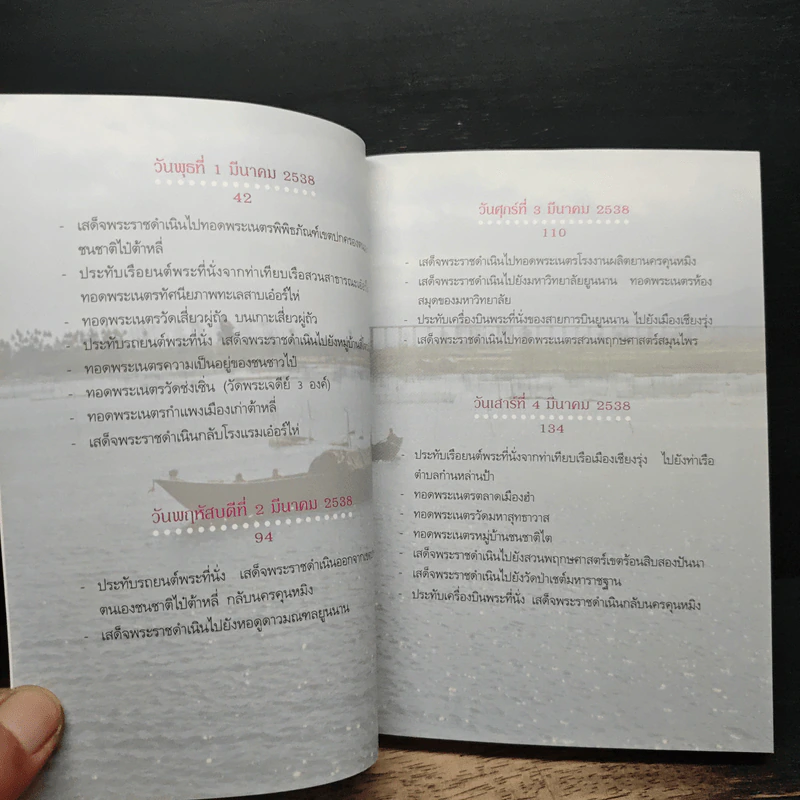 วันพุธที่ 1 มีนาคม 2538
42
- เสด็จพระราชดำเนินไปทอดพระเนตรพิพิธภัณฑ์เขตปกครอง
ชนชาติไป๋ต้าหลี่
- ประทับเรือยนต์พระที่นั่งจากท่าเทียบเรือสวนสาธารณะ
ทอดพระเนตรทัศนียภาพทะเลสาบเอ๋อร์ไห่
- ทอดพระเนตรวัดเสี่ยวผู่ถัว บนเกาะเสี่ยวผู่ถัว
- ประทับรถยนต์พระที่นั่ง เสด็จพระราชดำเนินไปยังหมู่บ้าน
- ทอดพระเนตรความเป็นอยู่ของชนชาวไป๋
- ทอดพระเนตรวัดช่งเซิ่น (วัดพระเจดีย์ 3 องค์)
- ทอดพระเนตรกำแพงเมืองเก่าต้าหลี่
- เสด็จพระราชดำเนินกลับโรงแรมเอ๋อร์ไห่
วันพฤหัสบดีที่ 2 มีนาคม 2538
94
- ประทับรถยนต์พระที่นั่ง เสด็จพระราชดำเนินออกจาก
ตนเองชนชาติไป๋ต้าหลี่ กลับนครคุนหมิง
- เสด็จพระราชดำเนินไปยังหอดูดาวมณฑลยูนนาน
วันศุกร์ที่ 3 มีนาคม 2538
110
- เสด็จพระราชดำเนินไปทอดพระเนตรโรงงานผลิตยานครคุนหมิง
- เสด็จพระราชดำเนินไปยังมหาวิทยาลัยยูนนาน ทอดพระเนตรห้อง
สมุดของมหาวิทยาลัย
- ประทับเครื่องบินพระที่นั่งของสายการบินยูนนาน ไปยังเมืองเชียงรุ่ง
- เสด็จพระราชดำเนินไปทอดพระเนตรสวนพฤกษศาสตร์สมุนไพร
วันเสาร์ที่ 4 มีนาคม 2538
134
- ประทับเรือยนต์พระที่นั่งจากท่าเทียบเรือเมืองเชียงรุ่ง ไปยังท่าเรือ
ตำบลก๋านหล่านป้า
- ทอดพระเนตรตลาดเมืองฮำ
- ทอดพระเนตรวัดมหาสุทธาวาส
- ทอดพระเนตรหมู่บ้านชนชาติไต
- เสด็จพระราชดำเนินไปยังสวนพฤกษศาสตร์เขตร้อนสิบสองปันนา
- เสด็จพระราชดำเนินไปยังวัดป่าเชต์มหาราชฐาน
- ประทับเครื่องบินพระที่นั่ง เสด็จพระราชดำเนินกลับนครคุนหมิง